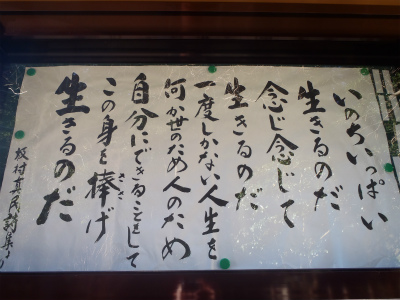 いのちいっぱい
生きるのだ
念じ念じて
生きるのだ
一度しかない人生を
何か世のため人のため
自分にできることをして
この身を捧げ
ささ
生きるのだ
坂村真民詩集より